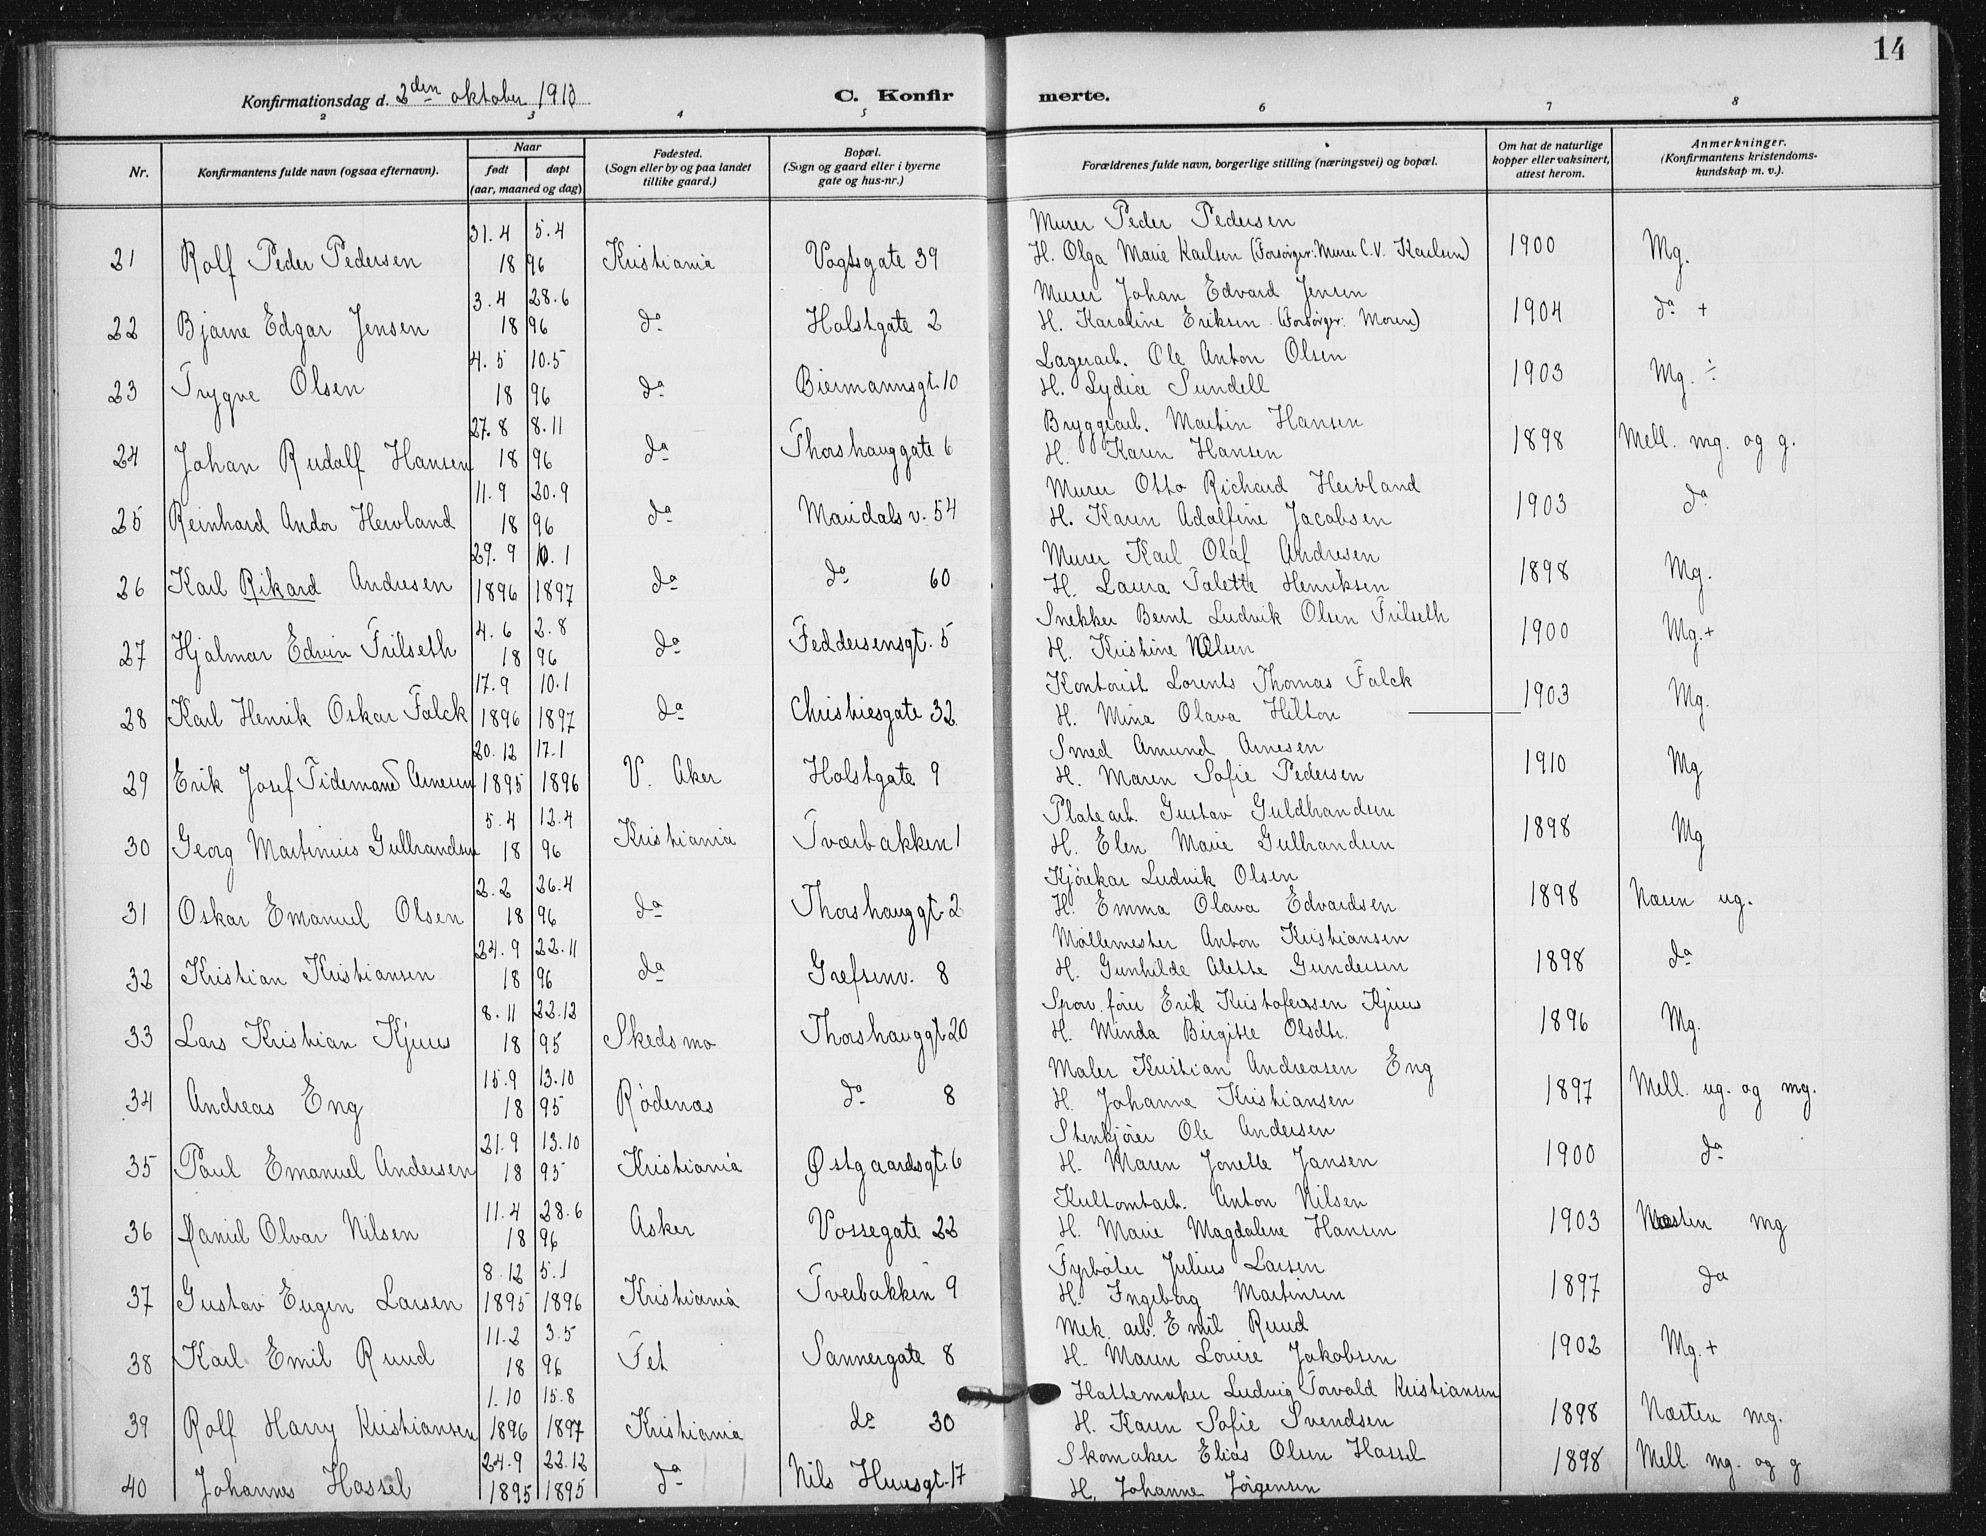 14
Konfirmationsdag d. 2den oktober 1910
C. Konfirmerte.
2 3 4 5 6 7 8
Nr.
Konfirmantens fulde navn (ogsaa efternavn).
Naar
født døpt
(aar, maaned og dag)
Fødested.
(Sogn eller by og paa landet
tillike gaard.)
Bopæl.
(Sogn og gaard eller i byerne
gate og hus-nr.)
Forældrenes fulde navn, borgerlige stilling (næringsvei) og bopæl.
Om hat de naturlige
kopper eller vaksinert,
attest herom.
Anmerkninger.
(Konfirmantens kristendoms-
kundskap m. v.).
31.4 5.4 Murer Peder Pedersen
21 Rolf Peder Pedersen 18 96 Kristiania Vogtsgate 39 H. Olga Marie Karlsen (Forsørger: Murer C.V. Karlsen) 1900 Mg.
3.4 28.6 Murer Johan Edvard Jensen
22 Bjarne Edgar Jensen 18 96 da Holstgate 2 H. Karoline Eriksen (Forsørger: Moren) 1904 da +
4.5 10.5 Lagerarb. Ole Anton Olsen
23 Trygve Olsen 18 96 da Biermannsgt. 10 H. Lydia Sundell 1903 Mg. ÷
27.8 8.11 Bryggearb. Martin Hansen
24 Johan Rudolf Hansen 18 96 da Thorshauggate 6 H. Karen Hansen 1898 Mell. mg. og g.
11.9 20.9 Murer Otto Richard Hervland
25 Reinhard Andor Hervland 18 96 da Maridals v. 54 H. Karen Adolfine Jacobsen 1903 da
29.9 10.1 Murer Karl Olaf Andresen
26 Karl Rikard Andresen 1896 1897 da da 60 H. Laura Talette Henriksen 1898 Mg.
4.6 2.8 Snekker Bernt Ludvik Olsen Trilseth
27 Hjalmar Edvin Trilseth 18 96 da Feddersensgt. 5 H. Kristine Olsen 1900 Mg. +
17.9 10.1 Kontorist Lorents Thomas Falck
28 Karl Henrik Oskar Falck 1896 1897 da Christiesgate 32 H. Mina Olava Hilton 1903 Mg.
20.12 17.1 Smed Amund Arnesen
29 Erik Josef Tidemand Arnesen 1895 1896 V. Aker Holstgate 9 H. Maren Sofie Pedersen 1910 Mg
5.4 12.4 Platearb. Gustav Guldbrandsen
30 Georg Martinius Gulbrandsen 18 96 Kristiania Tværbakken 1 H. Elen Marie Gulbrandsen 1898 Mg
2.2 26.4 Kjørekar Ludvik Olsen
31 Oskar Emanuel Olsen 18 96 da Thorshauggt. 2 H. Emma Olava Edvardsen 1898 Noren ug.
24.9 22.11 Møllemester Anton Kristiansen
32 Kristian Kristiansen 18 96 da Grefsenv. 8 H. Gunhilde Alette Gundersen 1898 da
8.11 22.12 Sporv. fører Erik Kristofersen Kjuus
33 Lars Kristian Kjuus 18 95 Skedsmo Thorshauggt. 20 H. Minda Birgitte Olsdtr. 1896 Mg.
15.9 13.10 Maler Kristian Andreasen Eng
34 Andreas Eng 18 95 Rødenæs da 8 H. Johanne Kristiansen 1897 Mell. ug. og mg.
21.9 13.10 Stenkjører Ole Andersen
35 Paul Emanuel Andersen 18 95 Kristiania Østgaardsgt. 6 H. Maren Jonette Jansen 1900 da
11.4 28.6 Kultomtarb. Anton Nilsen
36 Daniel Olvar Nilsen 18 96 Asker Vossegate 22 H. Marie Magdalene Hansen 1903 Næsten mg
8.12 5.1 Fyrbøter Julius Larsen
37 Gustav Eugen Larsen 1895 1896 Kristiania Tverbakken 9 H. Ingeborg Martinsen 1897 da
11.2 3.5 Mek. arb. Emil Ruud
38 Karl Emil Ruud 18 96 Fet Sannergate 8 H. Maren Lovise Jakobsen 1902 Mg. +
1.10 15.8 Hattemaker Ludvig Torvald Kristiansen
39 Rolf Harry Kristiansen 1896 1897 Kristiania da 30 H. Karen Sofie Svendsen 1898 Næsten mg.
24.9 22.12 Skomaker Elias Olsen Hassel
40 Johannes Hassel 1895 1895 da Nils Huusgt. 17 H. Johanne Jørgensen 1898 Mell. mg. og g